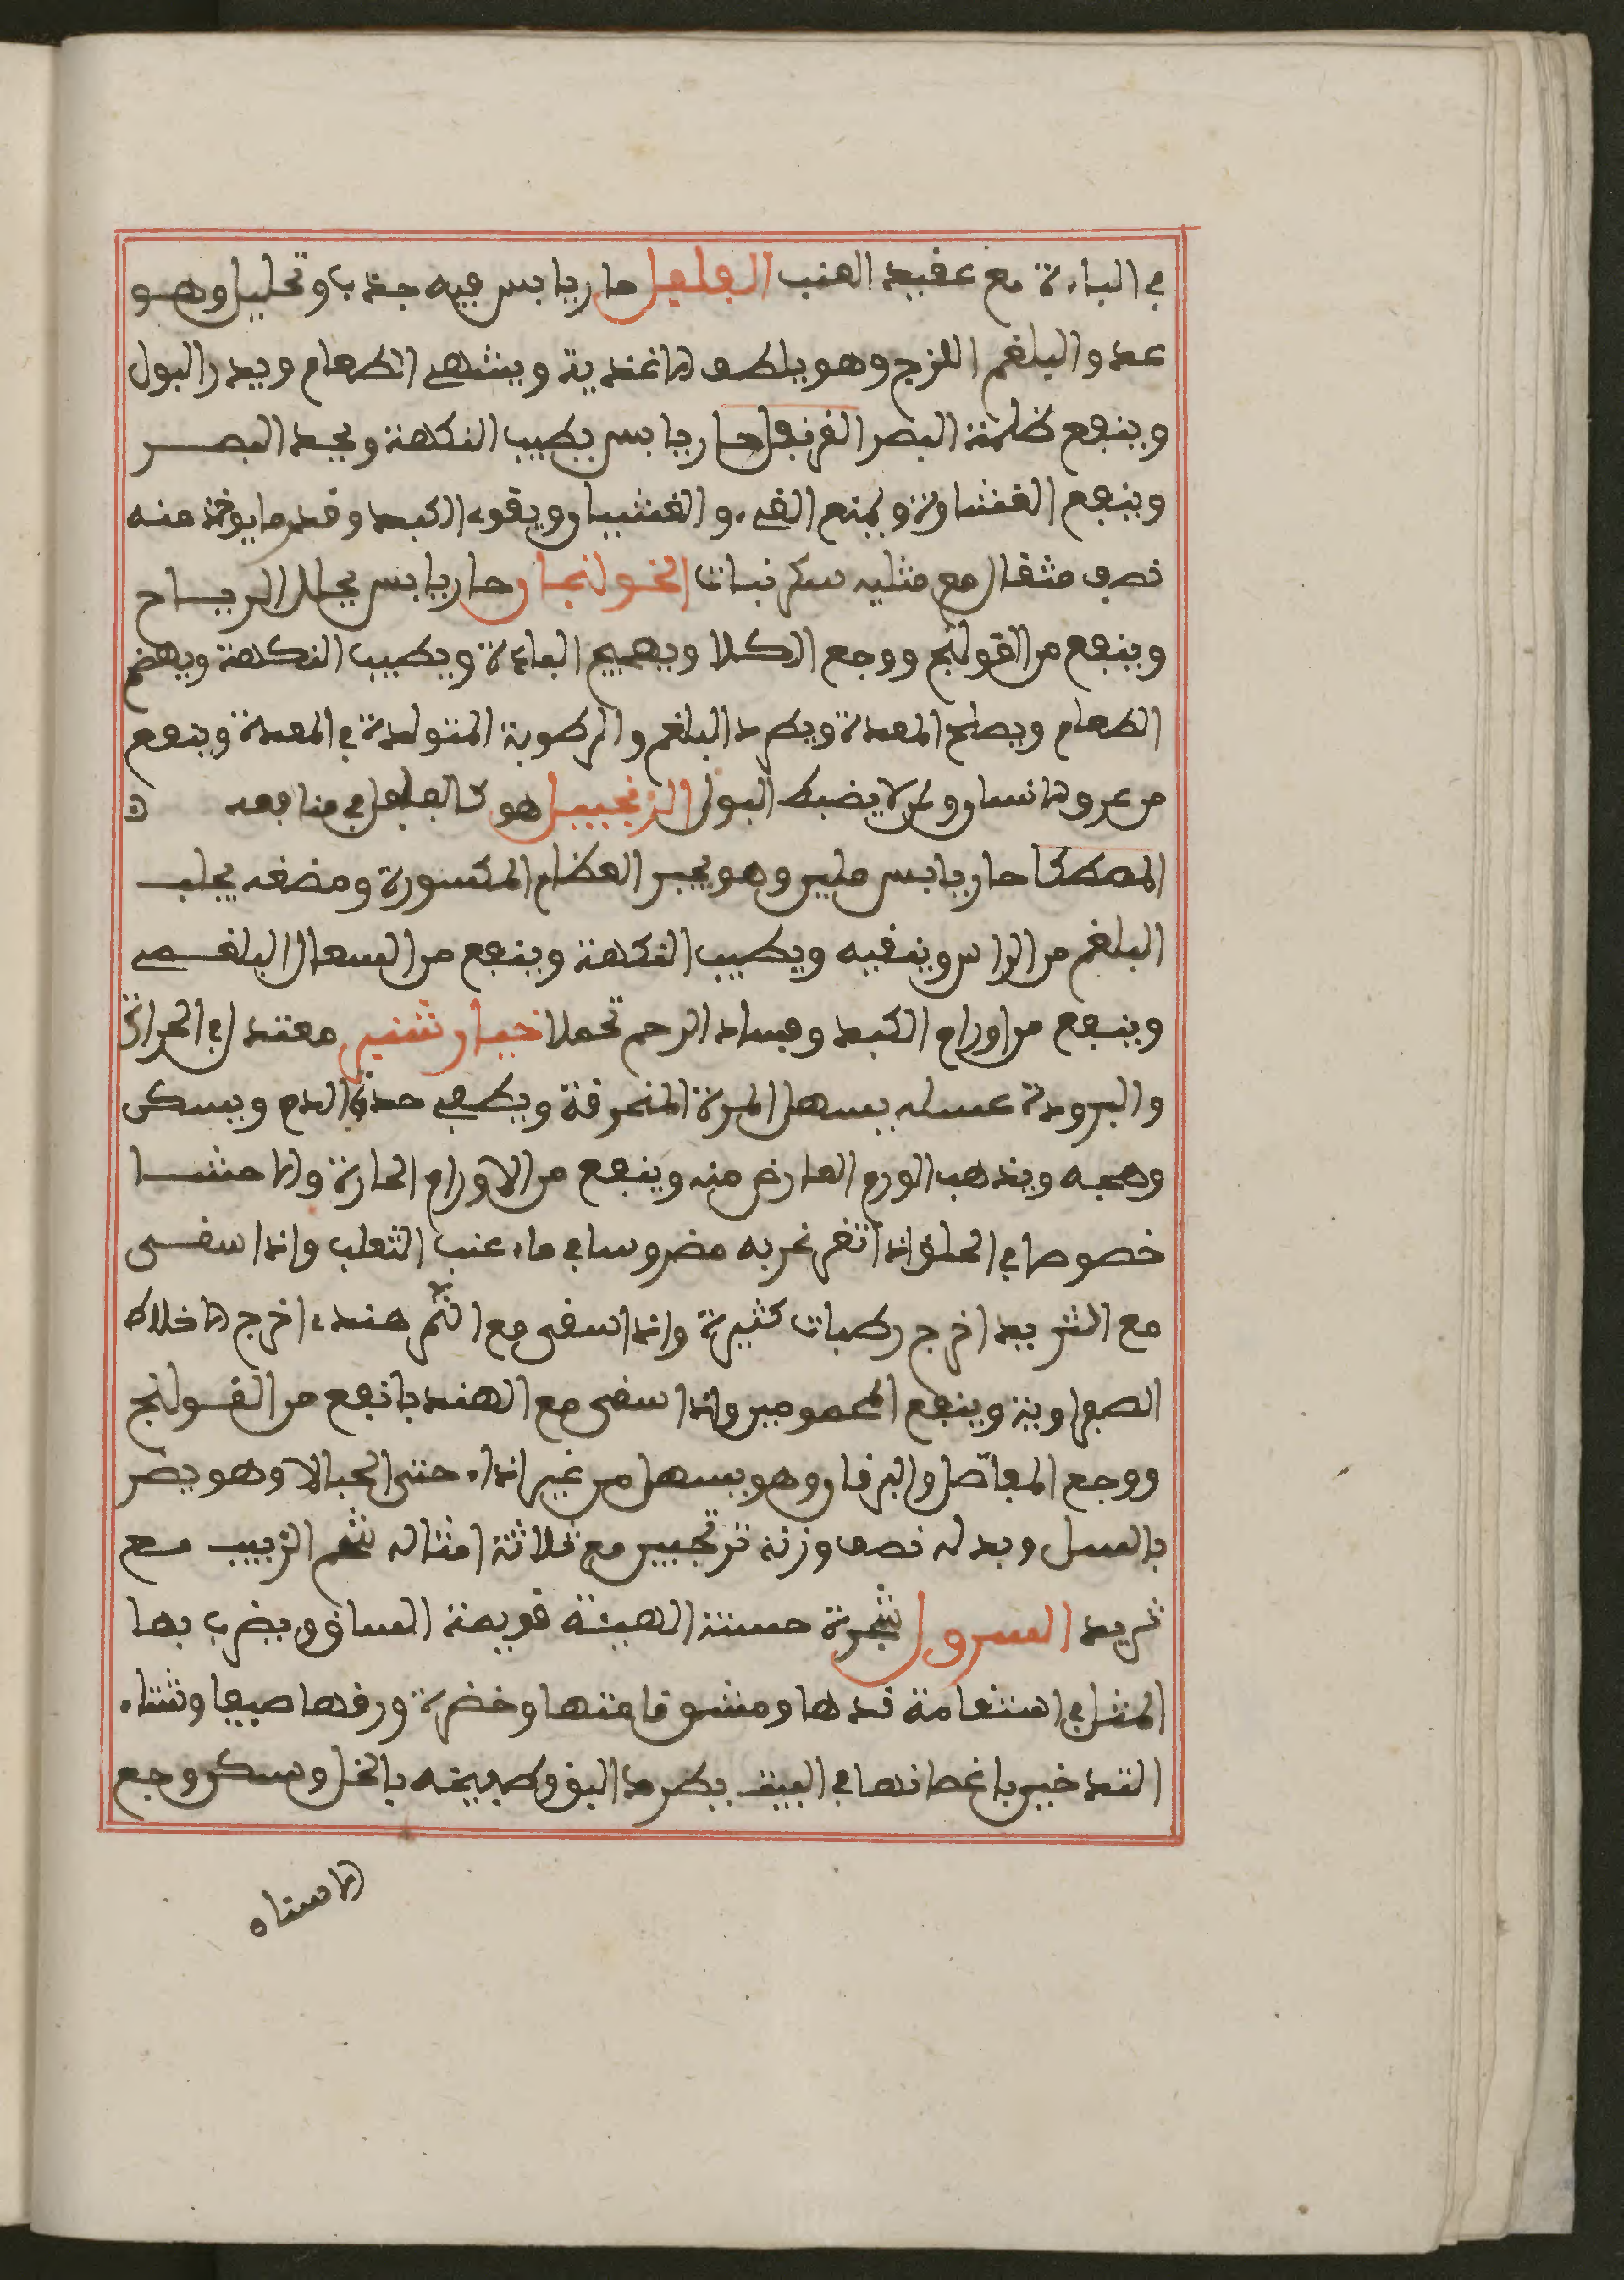 في الباءة مع عقيد العنب الفلفل حار يابس فيه جذب وتحليل وهو
عدو البلغم اللزج وهو يلطف الاغذية ويشهي الطعام ويدر البول
وينفع ظلمة البصر القرنفل حار يابس يطيب النكهة ويحد البصر
وينفع الغشاوة ويمنع القيء والغشيان ويقوي الكبد وقدر ما يوخذ منه
نصف مثقال مع مثليه سكر نبات الخولنجان حار يابس يحلل الرياح
وينفع من القولنج ووجع الكلا ويهيج الباءة ويطيب النكهة ويهضم
الطعام ويصلح المعدة ويطرد البلغم والرطوبة المتولدة في المعدة وينفع
من عرق الانسا ومن لا يضبط البول الزنجبيل هو كالفلفل في منافعه
المصطكا حار يابس ملين وهو يجبر العظام المكسورة ومضغه يجلب
البلغم من الراس وينقيه ويطيب النكهة وينفع من السعال البلغمي
وينفع من اورام الكبد وفساد الرحم تحملا خيار شنبر معتدل في الحرارة
والبرودة عسله يسهل المرة المحرقة ويطفي حدة الدم ويسكن
وهجه ويذهب الورم العارض منه وينفع من الاورام الحارة والاحشا
خصوصا في الحلق اذا تغرغر به مضروسا في ماء عنب الثعلب واذا سقى
مع التربد اخرج رطبات كثيرة واذا سقى مع التمر هندي اخرج الاخلاط
الصفراوية وينفع المحمومين واذا سقى مع الهندبا نفع من القولنج
ووجع المفاصل واليرقان وهو يسهل من غير اذاء حتى الحبالا وهو يضر
بالسبل وبدله نصف وزنه ترنجبين مع ثلاثة امثاله شحم الزبيب مع
تربد السرول شجرة حسنة الهيئة قويمة الساق ويضرب بها
المثل في استقامة قدها ومشق قامتها وخضرة ورقها صيفا وشتاء
التدخين باغصانها في البيت يطرد البق وطبيخه بالخل وسكن وجع
الاسنان